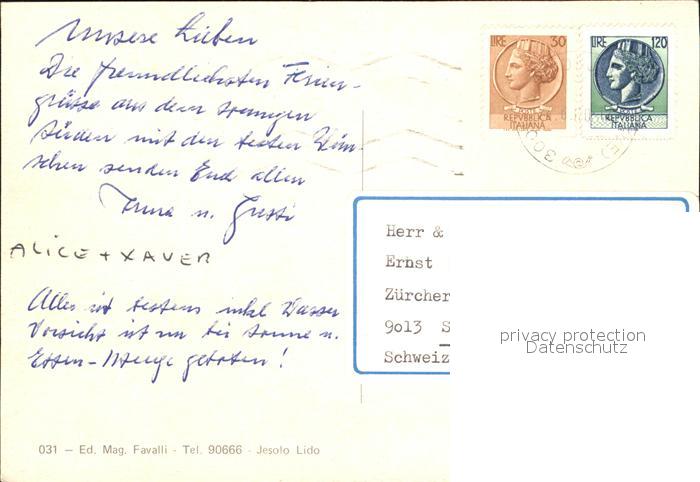 Unsere Lieben
Die freundlichsten Ferien-
grüsse aus dem sonnigen
Süden mit den besten Wün-
schen senden Euch allen
Irma u. Gusti
ALICE + XAVER
Alles ist bestens inkl Wasser
Vorsicht ist nur bei Sonne u.
Essen-Menge geboten!
031 — Ed. Mag. Favalli - Tel. 90666 - Jesolo Lido
LIRE 30
POSTE
REPVBBLICA
ITALIANA
LIRE 120
POSTE
REPVBBLICA
ITALIANA
Herr &
Ernst
Zürcher
9o13 S
Schweiz
privacy protection
Datenschutz